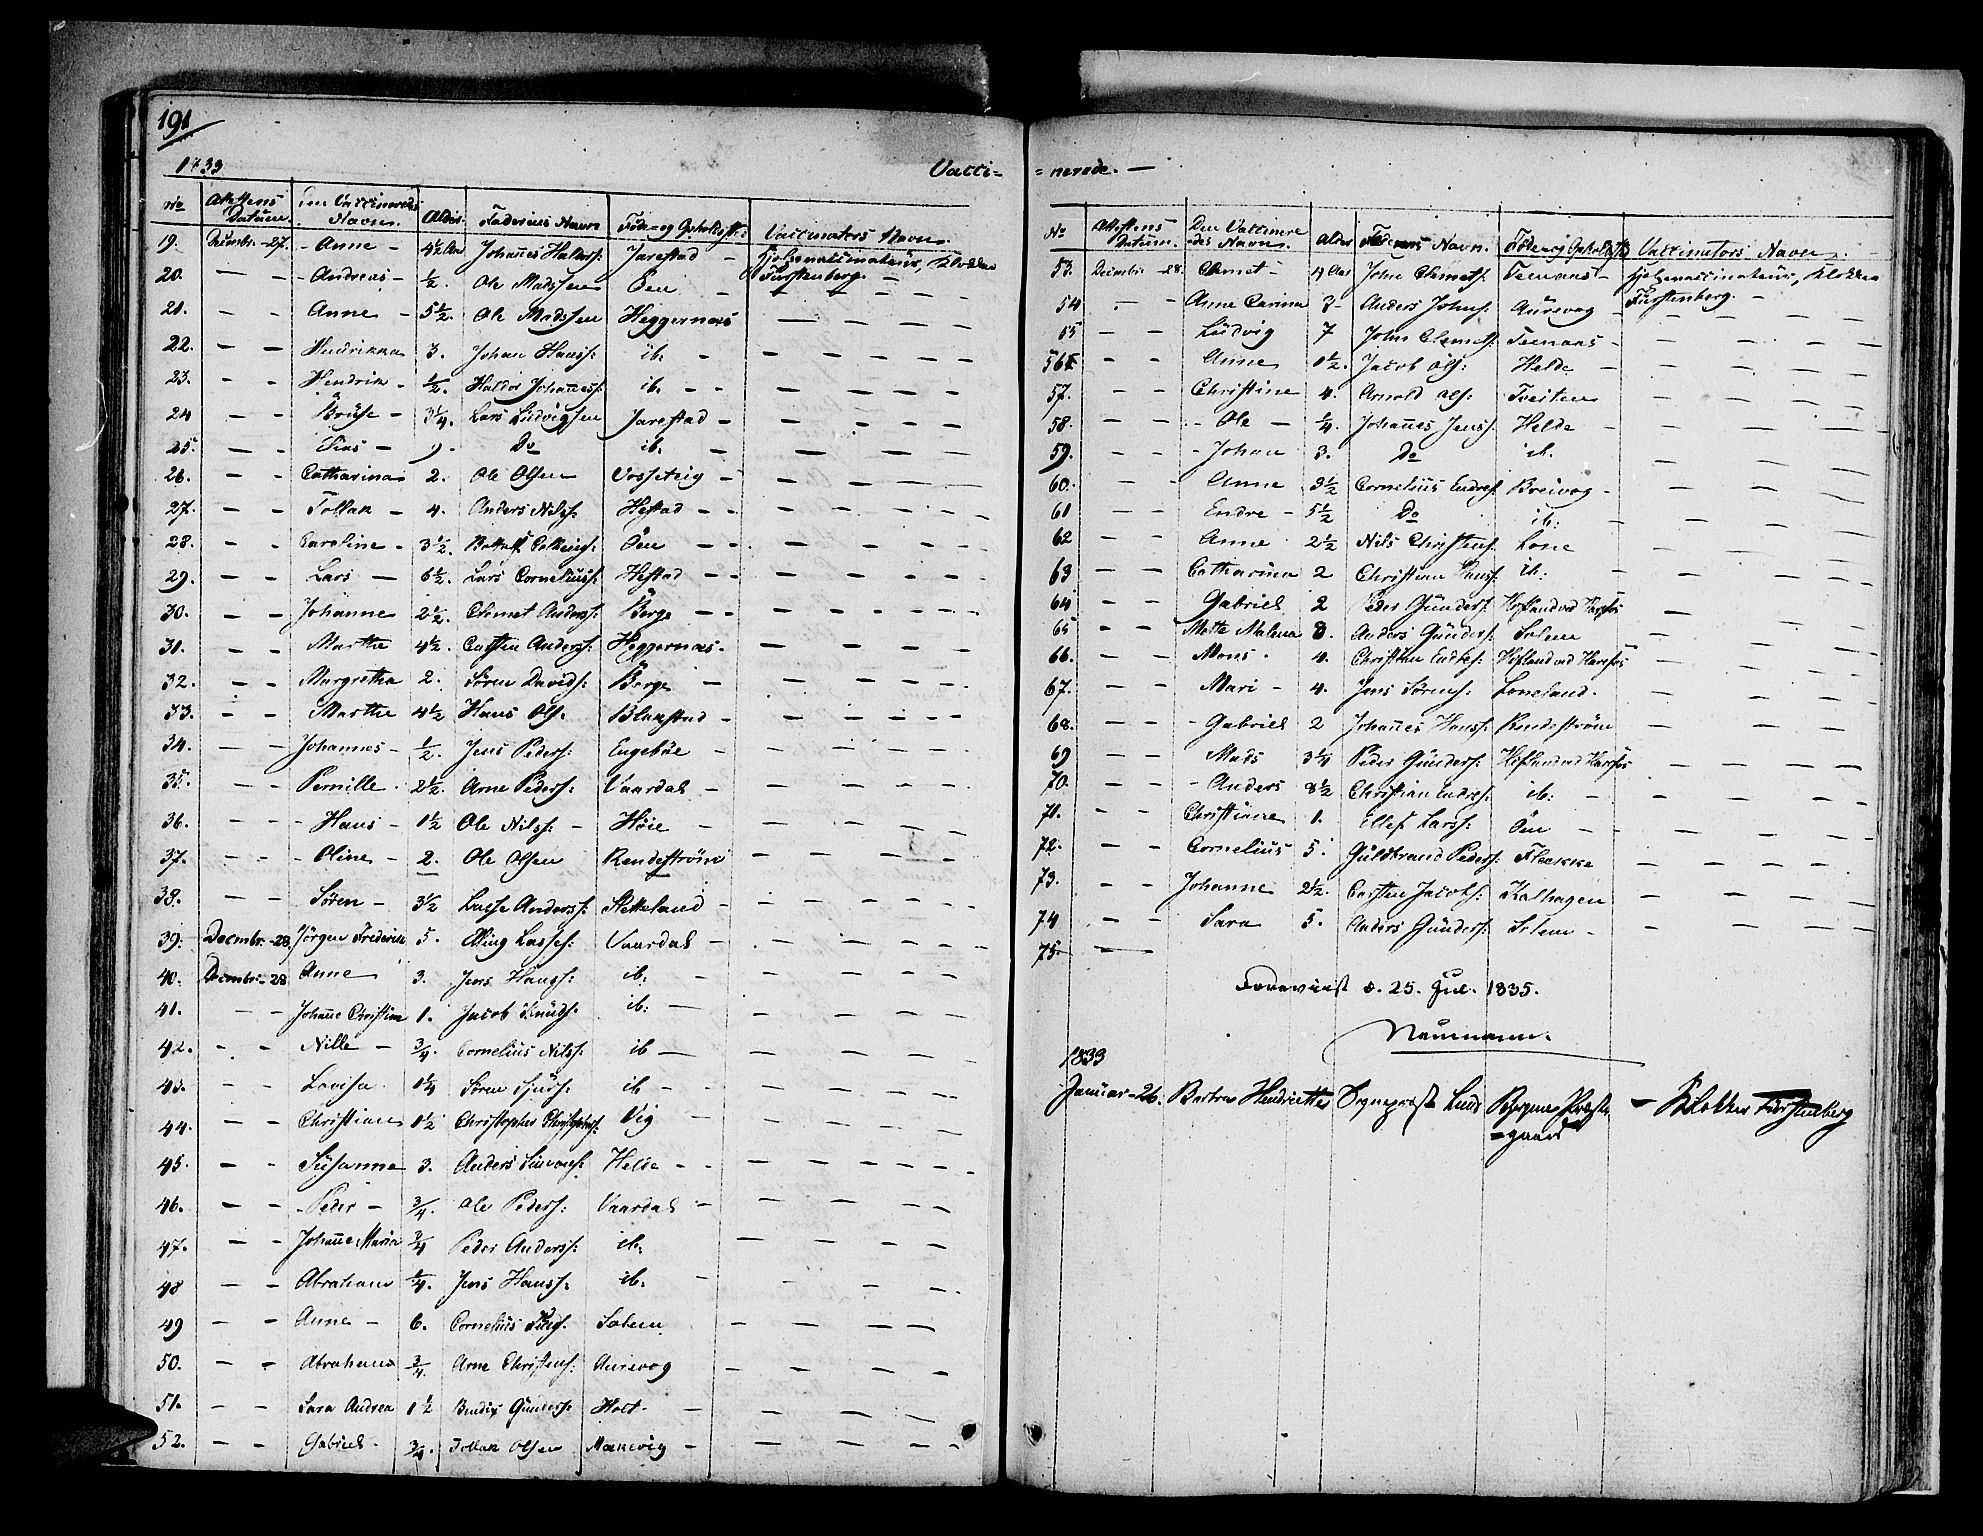 191
1833 Vacci-
No Attestens Datum. Den Vaccineredes Navn. Alder. Faderens Navn Føde- og Opholdsst: Vaccinators Navn.
19. Decembr. - 27. - Anne - 4½ Aar Johannes Halvors: Jarestad - Hjelpevaccinateur, Klokker
20. — - - Andreas - ½ Ole Madssen Øen - Furstenberg. —
21. - - Anne - 5½. Ole Madssen Heggernæs — — — — —
22. — - Hendrikka 3. Johan Hanss: ib. - - — — — —
23. - - Hendrik - ½. Haldor Johanness: ib. - - — — — —
24 - - Brüse - 3¼. Lars Ludvigsen Jarestad - — - — —
25. — - Elias - 9. Do ib. - — — — —
26. - - Catharina 2. Ole Olsen Vosseteig - — — — —
27. — - Tollak - 4. Anders Nilss: Hestad - - — — — —
28. - - Caroline - 3½. Øen - - — — — —
29. — - Lars — 6½. Lars Corneliuss: Hestad - - — — — —
30. — - Johanne 2½. Clemet Anderss: Berge - - — — — —
31. — - Marthe 4½. Carsten Anderss: Heggernæs. - — — — —
32. — - Margretha 2. Søren Davids: Berge - — — — —
33. - - Marthe 4½ Hans Ols: Blaxstad - — - — —
34. — - Johannes - ½. Jens Peders: Engebøe - — — — —
35. — - Pernille 2½. Arne Peders: Vaardal - — — — —
36. — - - Hans - 1½ Ole Nilss: - Høie - — — — —
37. - - - Oline - 2. Ole Olsen Rendestrøm — — — —
38. — - Søren - 3½ Lasse Anderss: Sletteland - — — — —
39. Decmbr. - 28. Jørgen Frederik 5. Elling Lasses: Vaardal - - — — —
40. Decmbr. - 28 Anne 3. Jens Hanss: ib: - — — — —
41. - - Johanne Christine 1. Jacob Knüds: ib: — — — — —
42. - - Nille - ¾. Cornelius Nilss: ib — — — — —
43. - - Lovisa. 1¼ Søren Sjurs: ib - — — — —
44. — - Christian 1½ Christopher Christophers: Vig — — — —
45. - - Susanne 3. Anders Simons: Helle - - — — — —
46. — - - Peder - ¾. Ole Peders: Vaardal - — — — —
47. — - Johanne Maria ¾ Peder Anderss: ib. — — — —
48 - - Abraham ¼. Jens Hanss: ib: - — — — —
49 — - Anne - 6. Cornelius Solem — — — —
50. — - Abraham ¾. Arne Christens: Aurevog - — — — —
51. — - Sara Andrea 1½ Bendix Gunders: Holt - - — — — —
52. — - Gabriel - ¾. Tollak Olsen Nanevig - — — — —
- nerede. —
No Attestens Datum. Den Vaccineredes Navn. Alder Faderens Navn. Føde- og Opholdsst: Vaccinators Navn.
53. Decembr. - 28. Clemet - 9 Aar John Clemets: Teenæs - Hjelpevaccinateur, Klokker
54 . - - Anne Carina 3 - Anders Johns: Aurevog - Furstenberg. —
55 — - Ludvig 7 John Clemets: Teenæs - — — — —
56 - - Anne 1½. Jacob Ols: Helde - — — — —
57. - - Christine 4. Arnold Ols: Tveiten — — — —
58. — - - Ole - ¼. Johannes Jenss: Helde - — — — —
59. — - - Johan 3. Do ib. — — — —
60. — - Anne 3½ Cornelius Endres: Breivog - — — — —
61 — - Endre - 5½ Do ib: - — — — —
62 - - Anne 2½ Nils Christens: Lone — — — —
63 — - Catharina 2 Christian Hanss: ib: - — — — —
64 - - Gabriel 2 Peder Gunders: Høfland ved Harefos — — — —
65 - - Mette Malena 8. Anders Gunders: Solem — — — —
66. — - Mons. 4. Christian Endres: Høfland ved Harefos — — — —
67. — - Mari - 4. Jens Sørens: Loneland. — — — —
68. — - - Gabriel 2 Johannes Hanss: Rendestrøm — — — —
69 — - Mads 3¼ Peder Gunders: Høfland ved Harefos — — — —
70. — - - Anders 8½ Christian Endres: ib: - — — — —
71. — - Christiane 1. Ellef Larss: Øen - - — — — —
72. — - Cornelius 5. Guldbrand Peders: Flekke — — — —
73. - - Johanne 2½. Carsten Jacobs: Kalhagen — — — —
74 — - Sara 5. Anders Gunders: Solem - — — — —
75. —
Forevist d. 25. Jul. 1835.
Neumann.
1833
Januar - 26. Bertha Henriette Sogneprest Lund Præste- — Klokker Furstenberg
= gaard